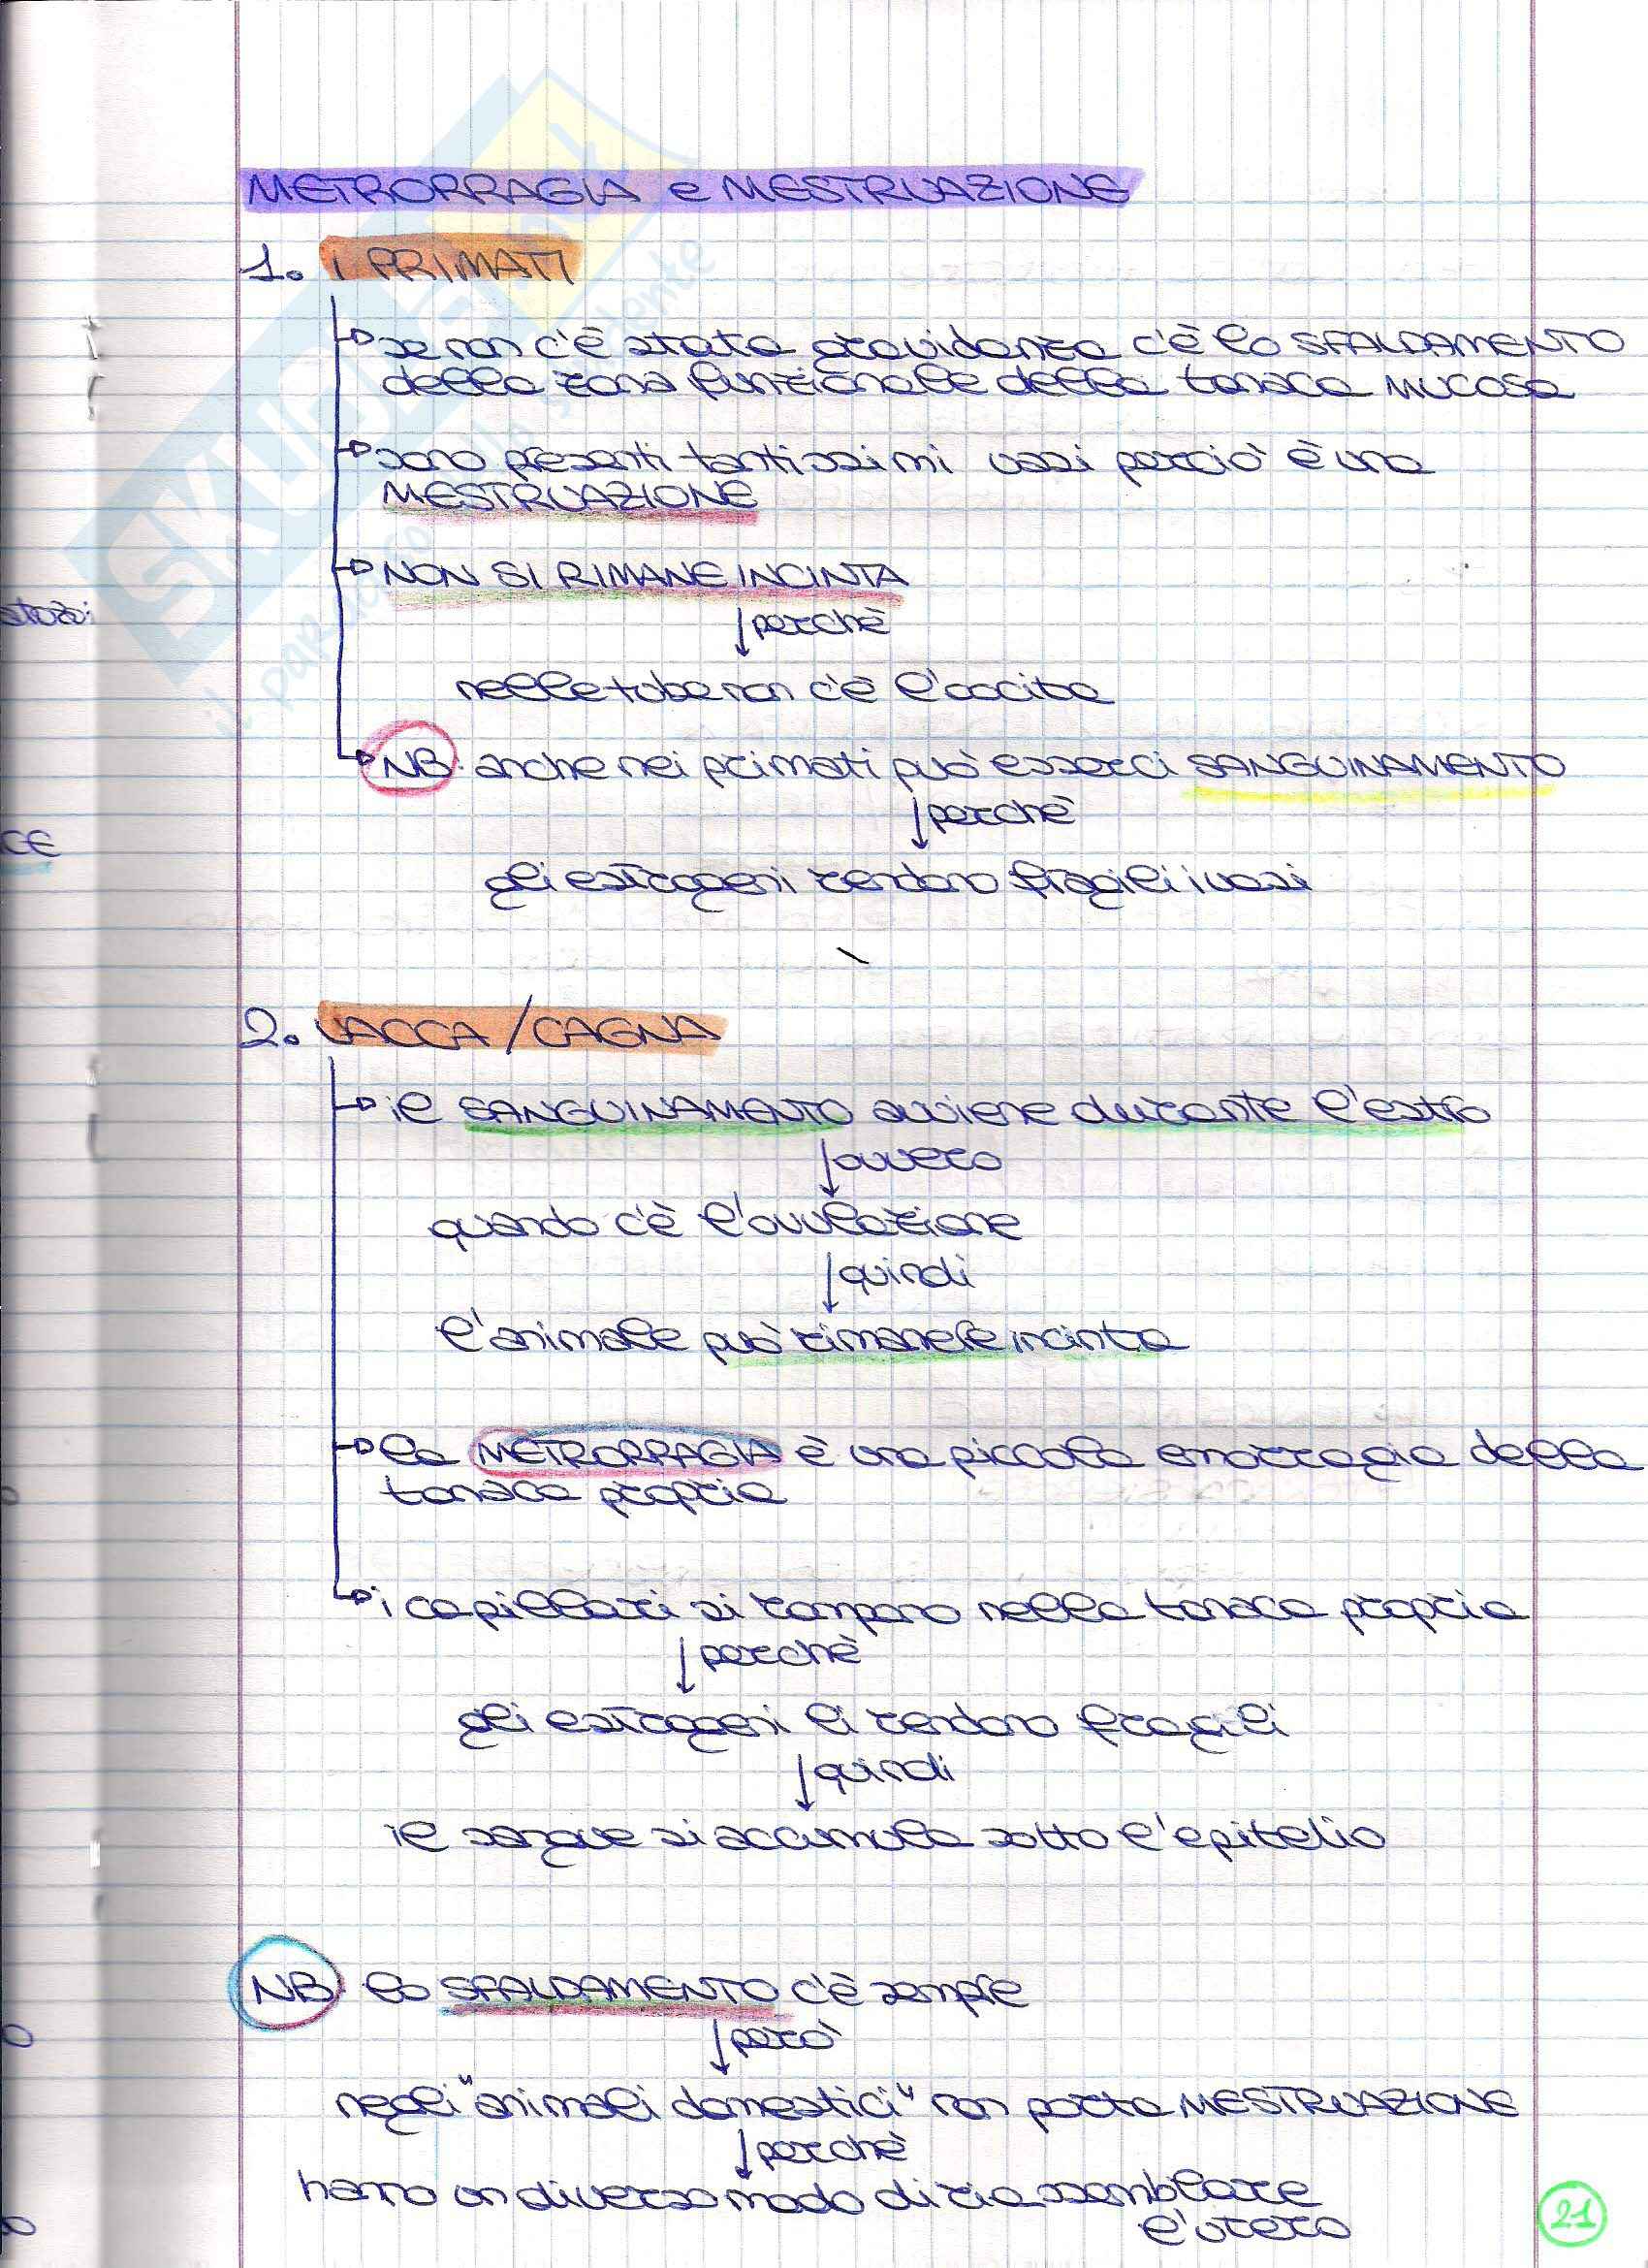 METRORRAGIA e MESTRUAZIONE
1. I PRIMATI
se non c'è stata gravidanza c'è lo SFALDAMENTO
della zona funzionale della tonaca mucosa
sono presenti tantissimi vasi perciò è una
MESTRUAZIONE
NON SI RIMANE INCINTA
perchè
nelle tube non c'è l'oocita
NB: anche nei primati può esserci SANGUINAMENTO
perchè
gli estrogeni rendono fragili i vasi
2. VACCA/CAGNA
il SANGUINAMENTO avviene durante l'estro
ovvero
quando c'è l'ovulazione
quindi
l'animale può rimanere incinta
la METRORRAGIA è una piccola emorragia della
tonaca propria
i capillari si rompono nella tonaca propria
perchè
gli estrogeni li rendono fragili
quindi
il sangue si accumula sotto l'epitelio
NB: lo SFALDAMENTO c'è sempre
però
negli "animali domestici" non porta MESTRUAZIONE
perchè
hanno un diverso modo di riassemblare
l'utero
21
SKUOLA.net
il paradiso dello studente